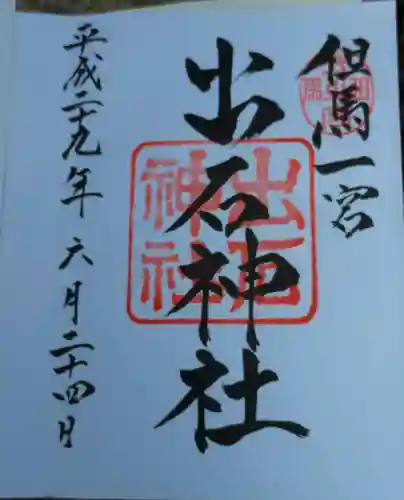 但馬一宮
出石神社
出石神社
平成二十九年六月二十四日